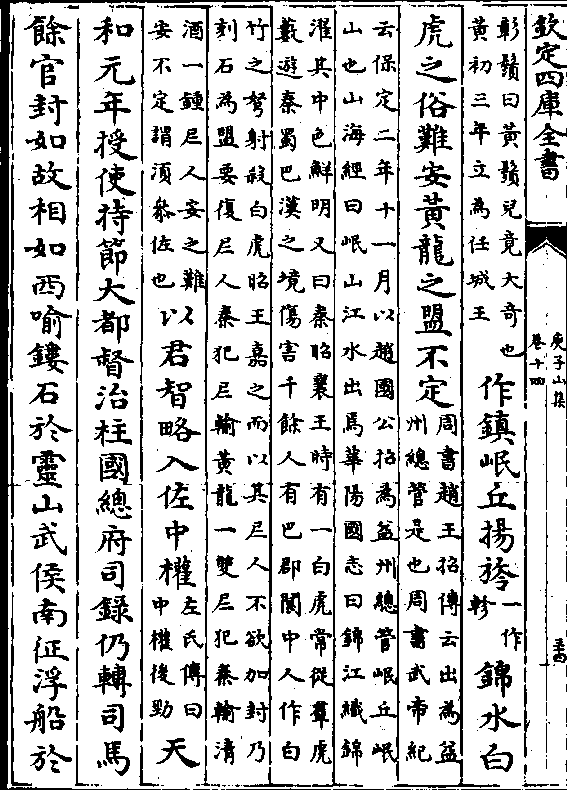 欽定四庫全書
庾子山集
卷十四
彰鬚曰黃鬚兒竟大奇也
黃初三年立為任城王
作鎮岷丘揚旍
一作
軫
錦水白
虎之俗難安黃龍之盟不定
周書趙王招傳云出為益
州總管是也周書武帝紀
云保定二年十一月以趙國公招為益州總管岷丘岷
山也山海經曰岷山江水出焉華陽國志曰錦江織錦
濯其中色鮮明又曰秦昭襄王時有一白虎常從羣虎
數遊秦蜀巴漢之境傷害千餘人有巴郡閬中人作白
竹之弩射殺白虎昭王嘉之而以其夷人不欲加封乃
刻石為盟要復夷人秦犯夷輸黃龍一雙夷犯秦輸清
酒一鍾夷人安之難
安不定謂須叅佐也
以君智略入佐中權
左氏傳曰
中權後勁
天
和元年授使持節大都督治柱國總府司錄仍轉司馬
餘官封如故相如西喻鏤石於靈山武侯南征浮船於